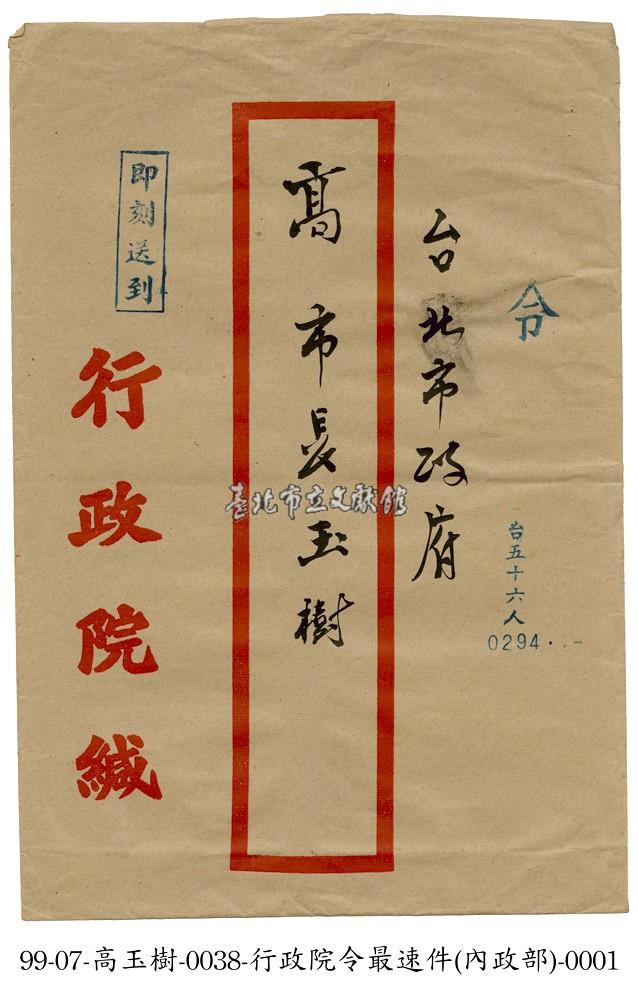 令
台五十六人
0294··-
台北市政府
高市長玉樹
即刻送到
行政院緘
臺北市立文獻館
99-07-高玉樹-0038-行政院令最速件(內政部)-0001